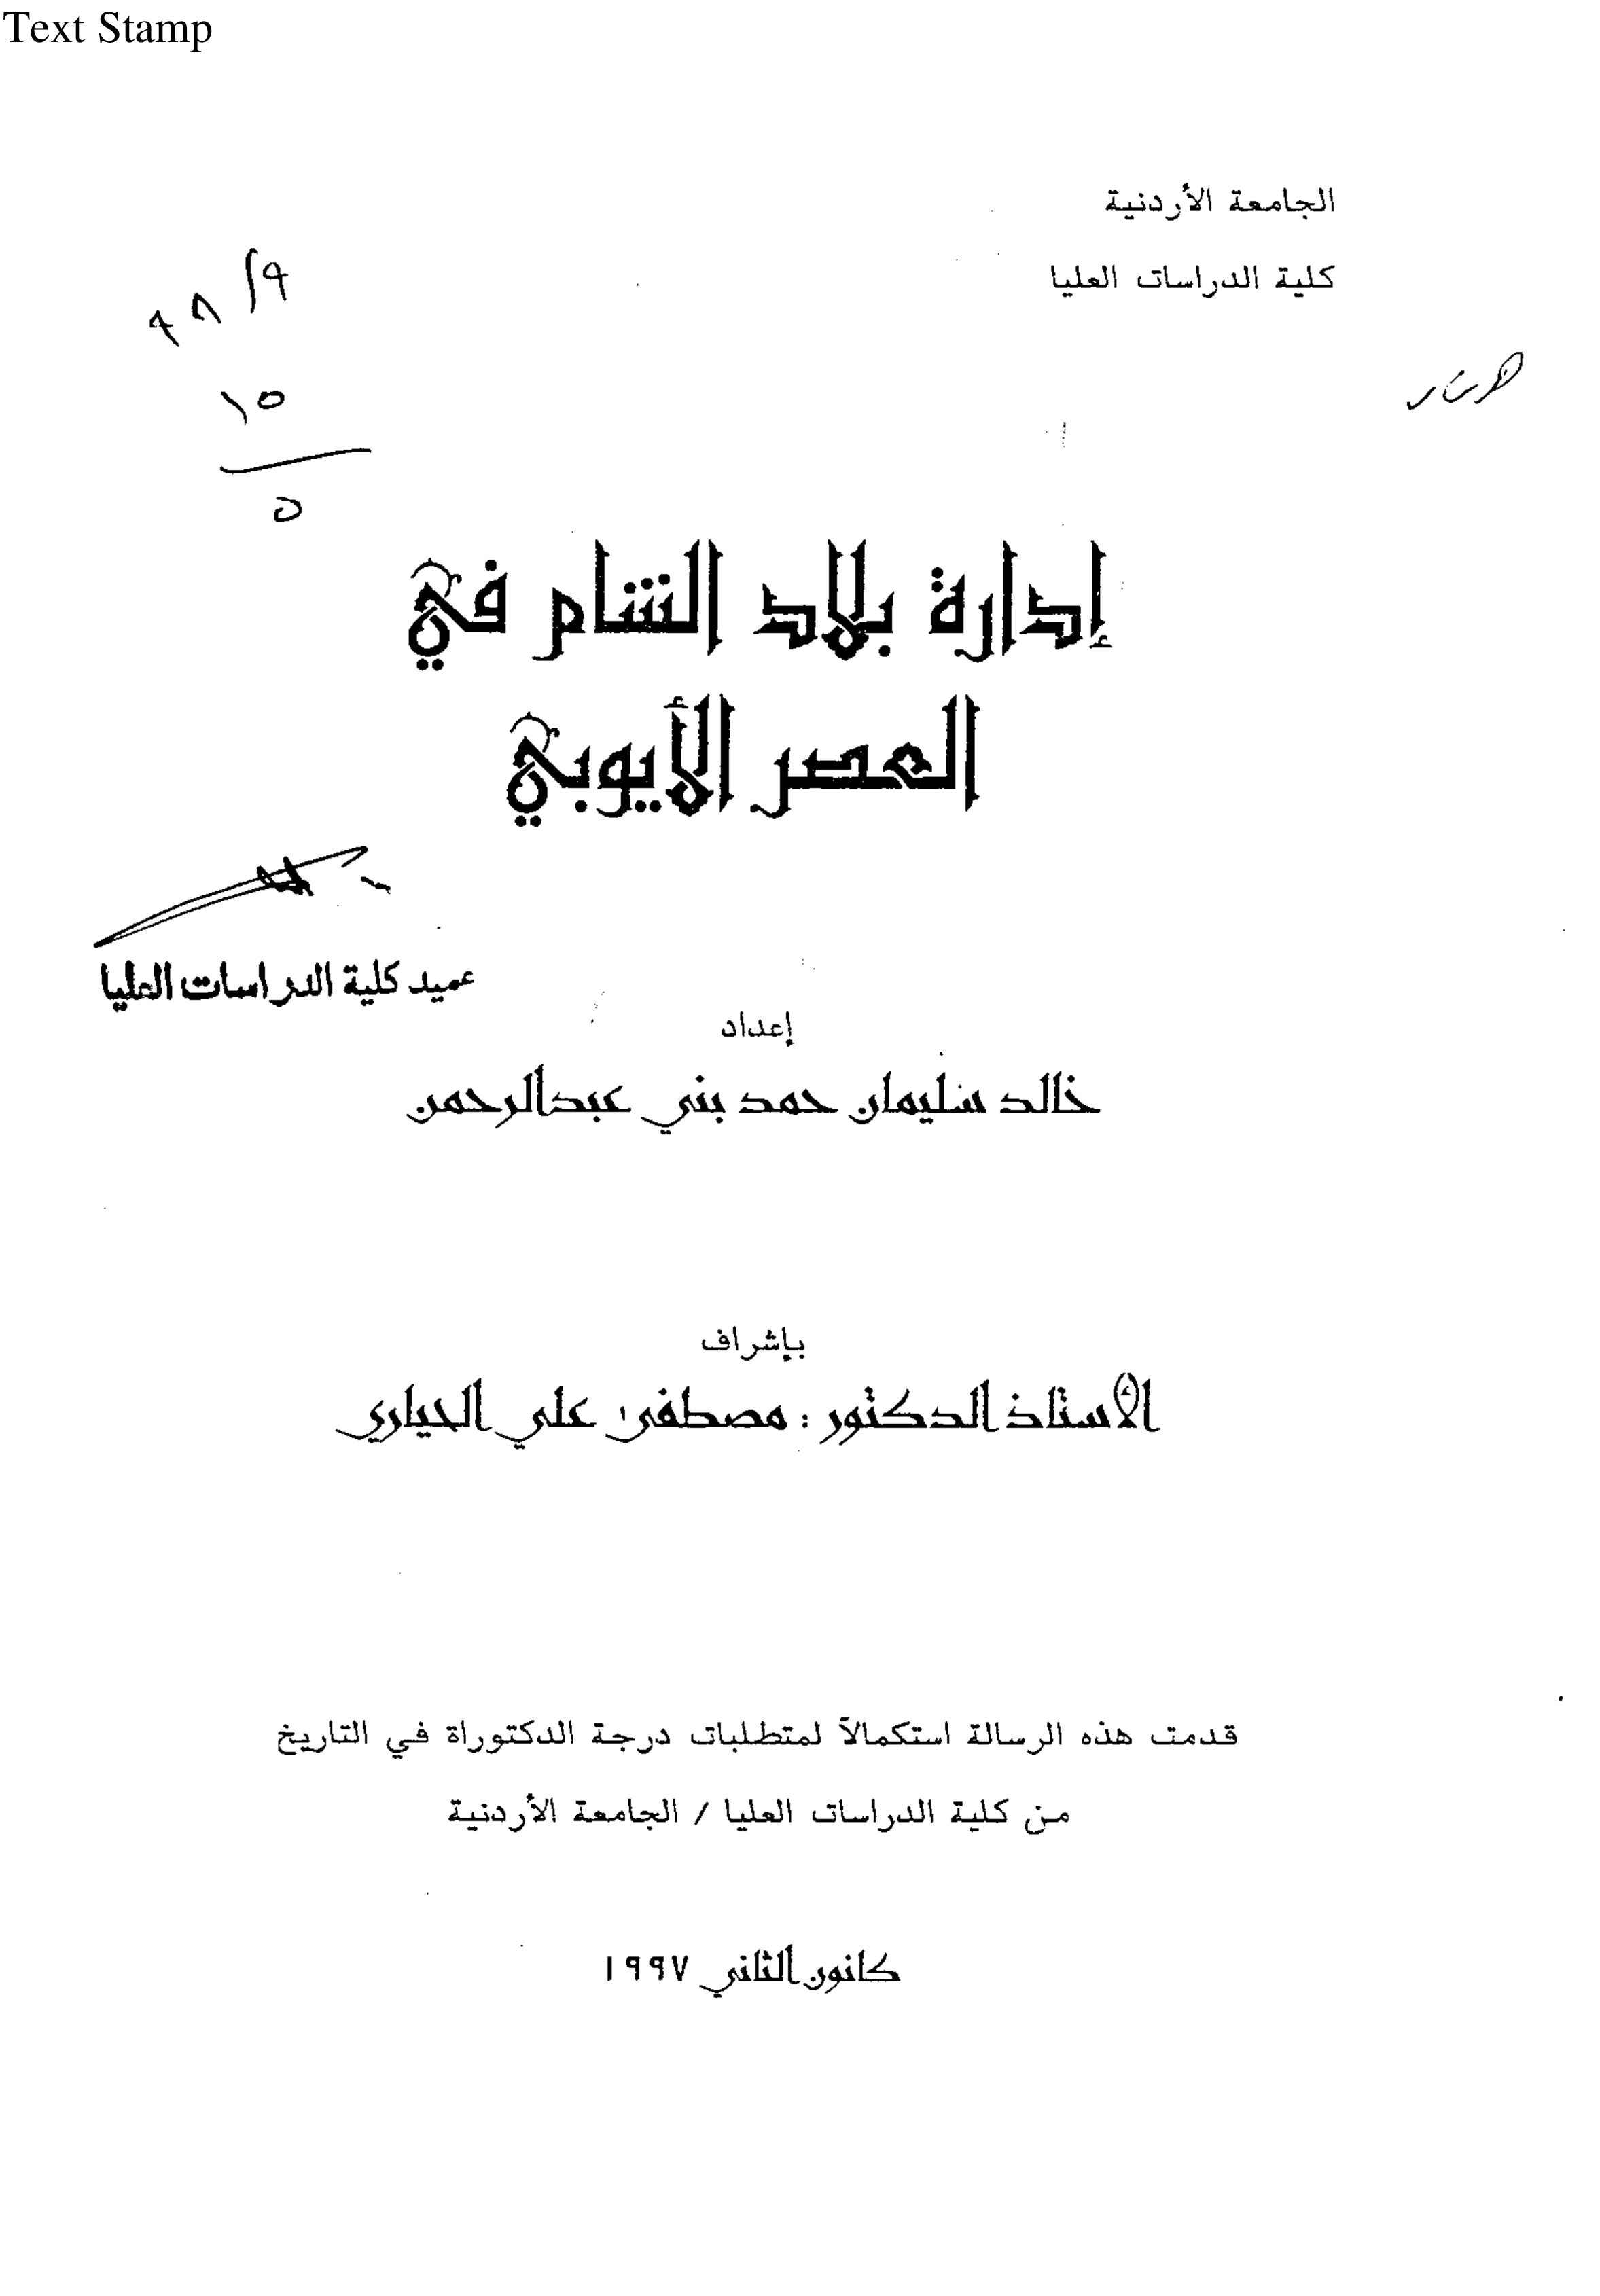 Text Stamp
الجامعة الأردنية
كلية الدراسات العليا
١٥
٥
إدارة بلاد الشام في
العصر الأيوبي
عميد كلية الدراسات العليا
إعداد
خالد سليمان حمد بني عبدالرحمن
بإشراف
الأستاذ الدكتور : مصطفى علي الحياري
قدمت هذه الرسالة استكمالاً لمتطلبات درجة الدكتوراة في التاريخ
من كلية الدراسات العليا / الجامعة الأردنية
كانون الثاني ١٩٩٧